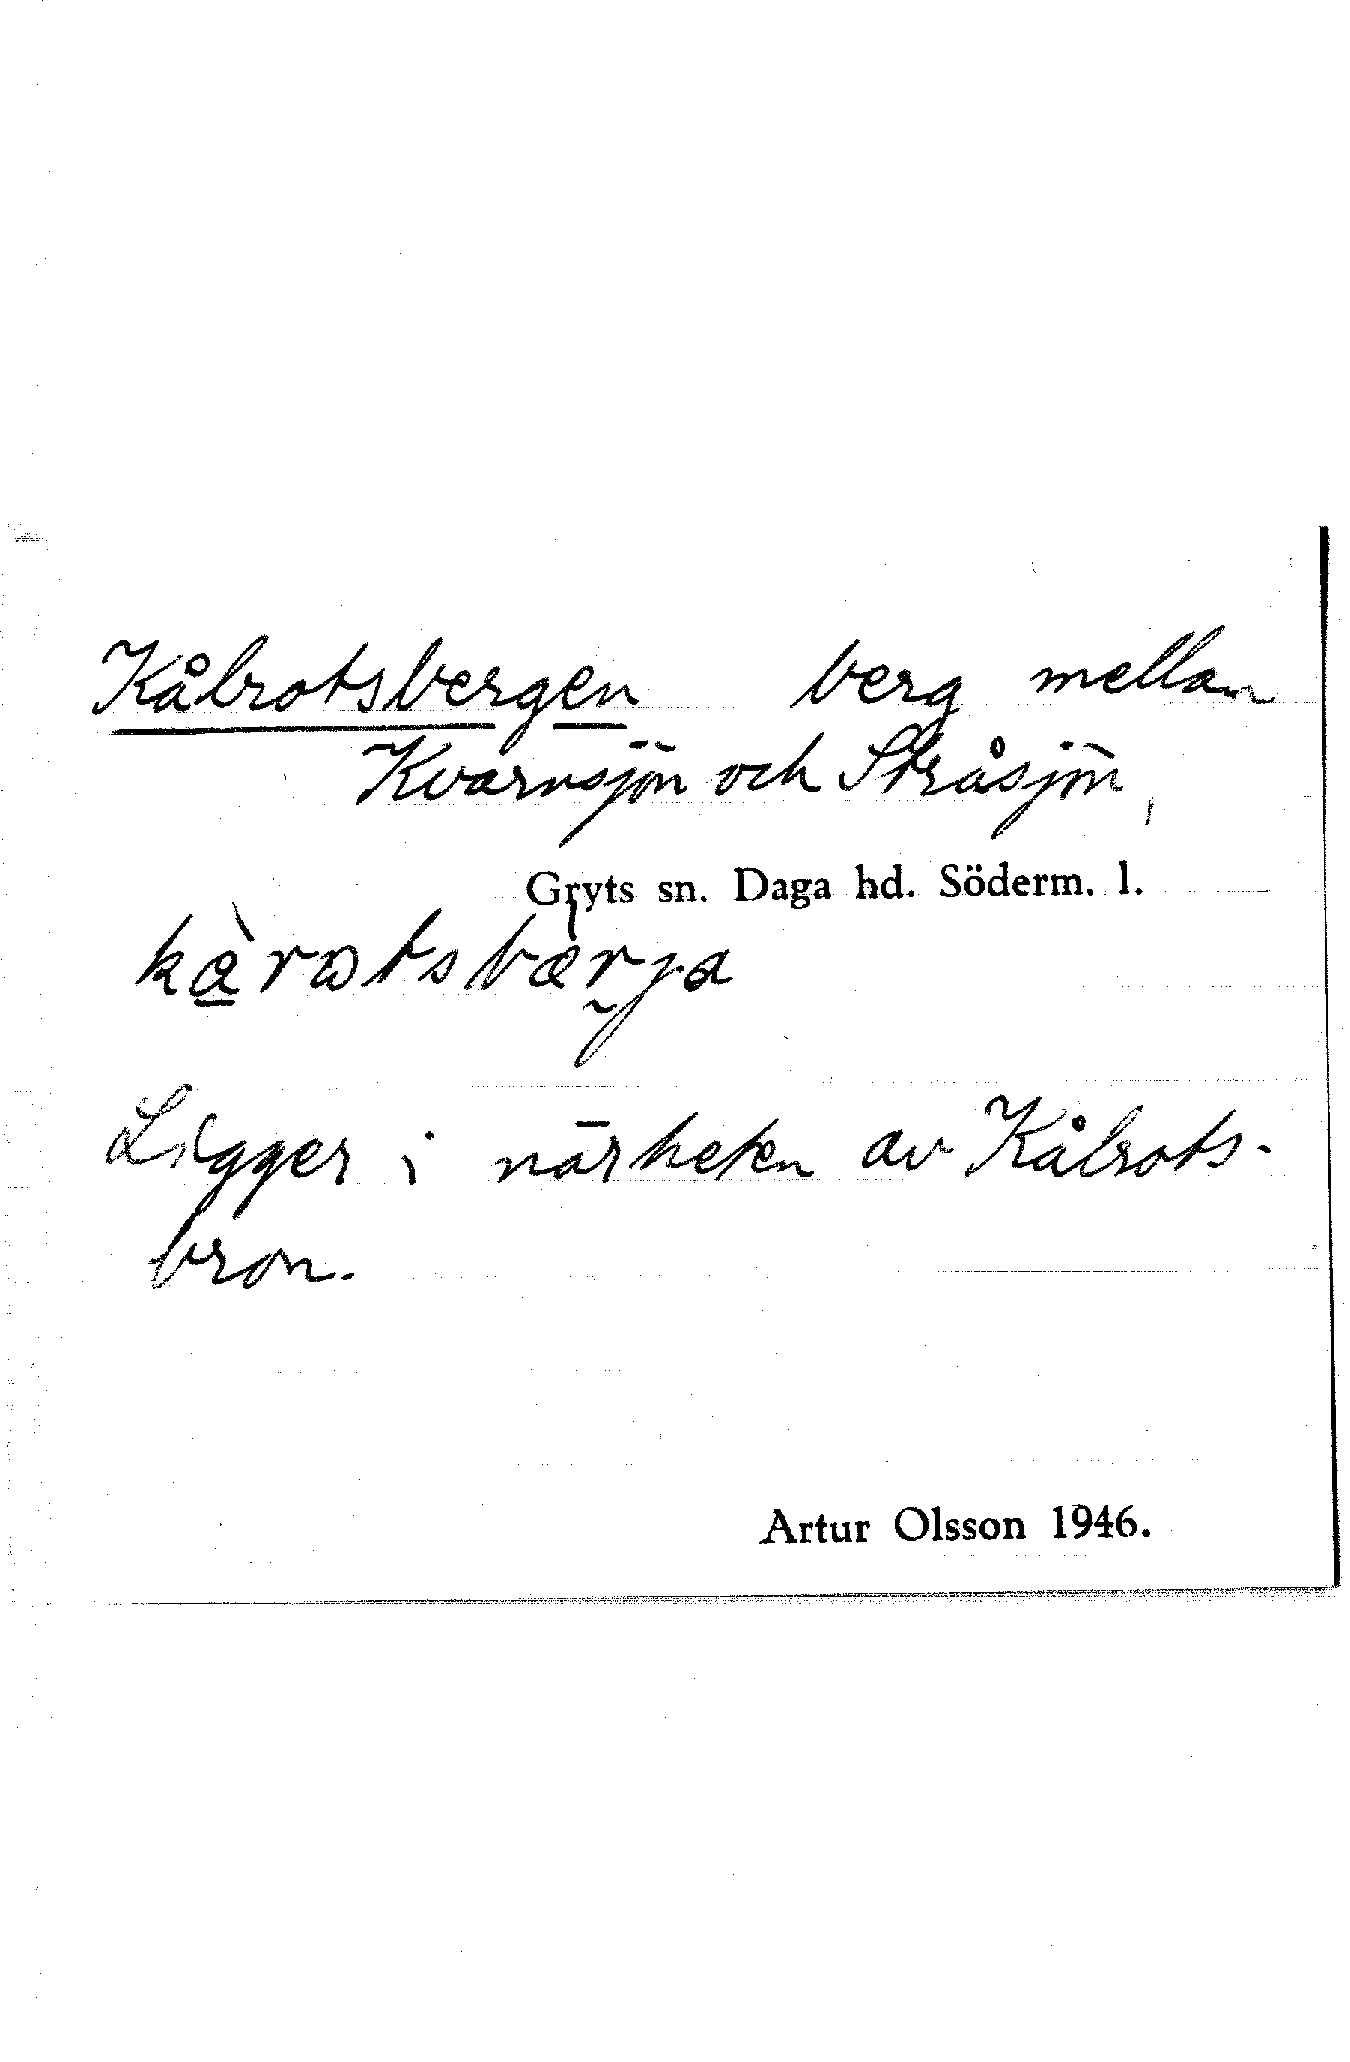 Kålrotsbergen berg mellan
Kvarnsjön och Stråsjön,
Gryts sn. Daga hd. Söderm. l.
Ligger i närheten av Kålrots-
bron.
Artur Olsson 1946.